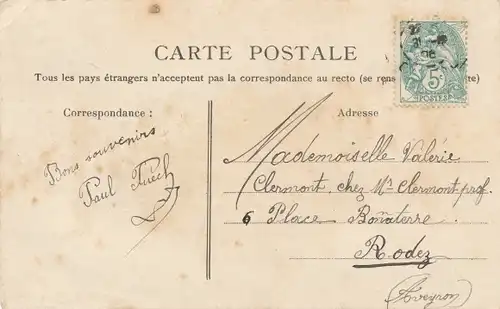 CARTE POSTALE
Tous les pays étrangers n'acceptent pas la correspondance au recto (se ren
Correspondance :
Adresse
Bons souvenirs
Paul Tuéch
Mademoiselle Valérie
Clermont, chez Mr Clermont prof.
6 Place Bonaterre
Rodez
(Aveyron)
5c
POSTES